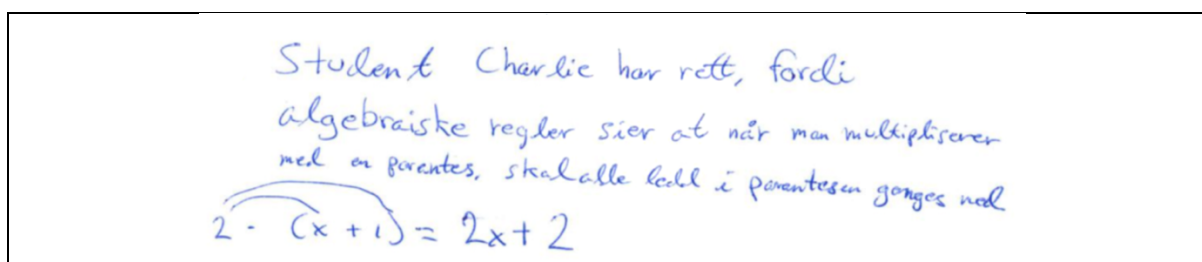 Student Charlie har rett, fordi
algebraiske regler sier at når man multipliserer
med en parentes, skal alle ledd i parentesen ganges med
2 · (x + 1) = 2x + 2